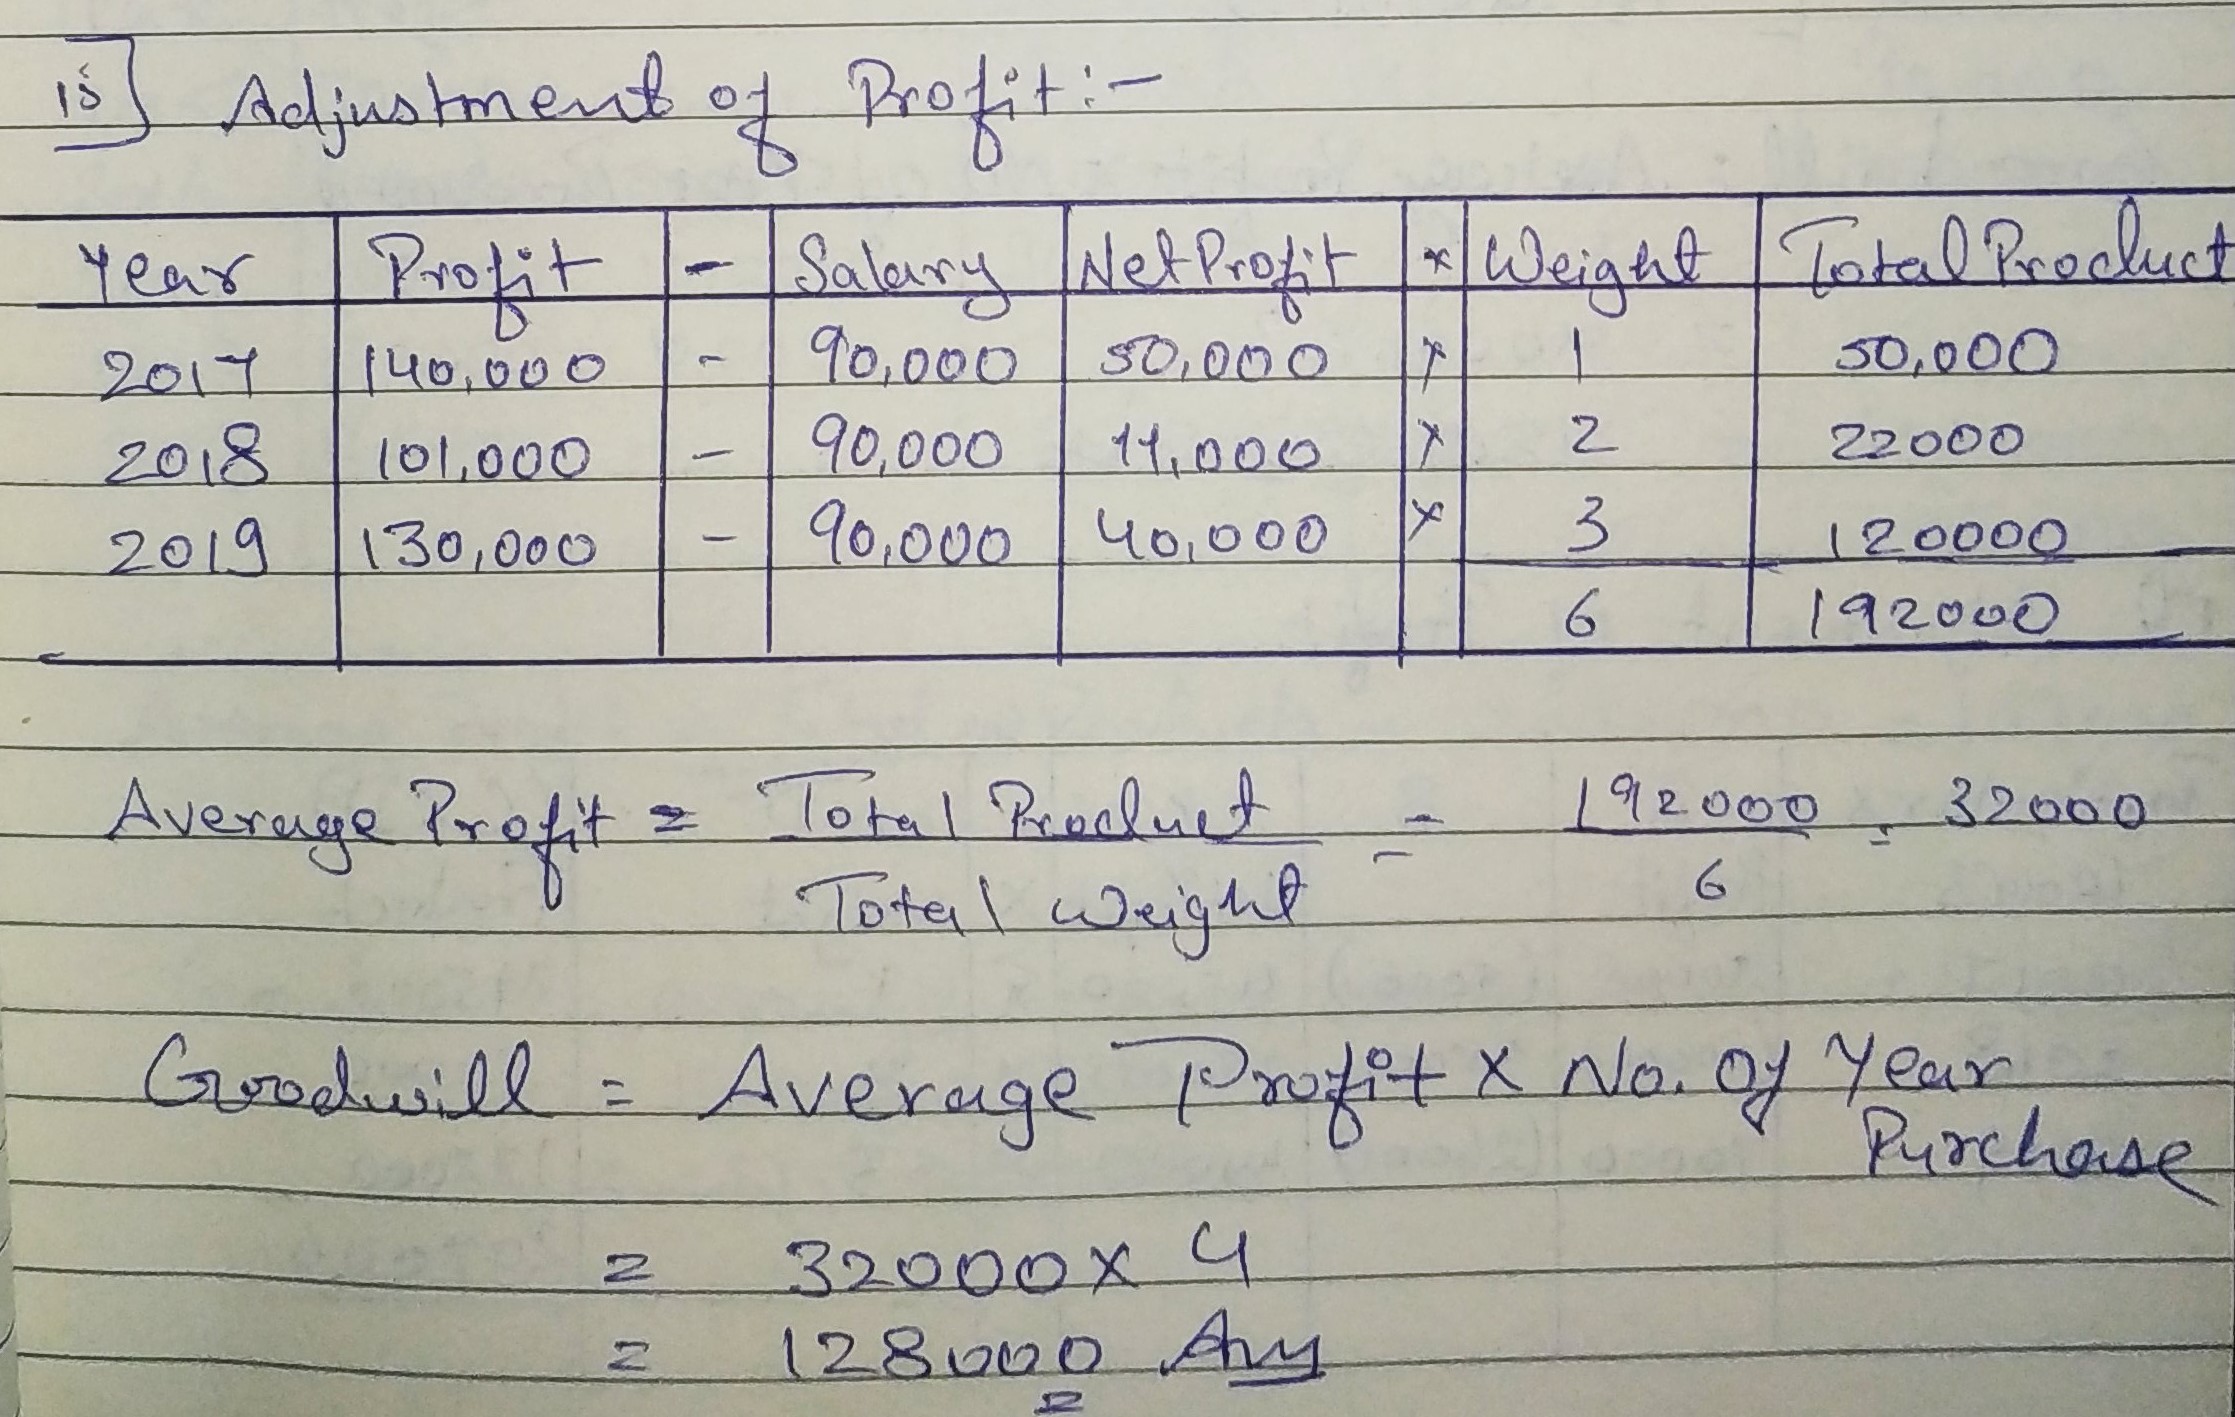 15] Adjustment of Profit:-
Year Profit - Salary Net Profit × Weight Total Product
2017 140,000 - 90,000 50,000 × 1 50,000
2018 101,000 - 90,000 11,000 × 2 22000
2019 130,000 - 90,000 40,000 × 3 120000
6 192000
Average Profit = Total Product = 192000 = 32000
Total Weight 6
Goodwill = Average Profit × No. of Year
Purchase
= 32000 × 4
= 128000 Ans